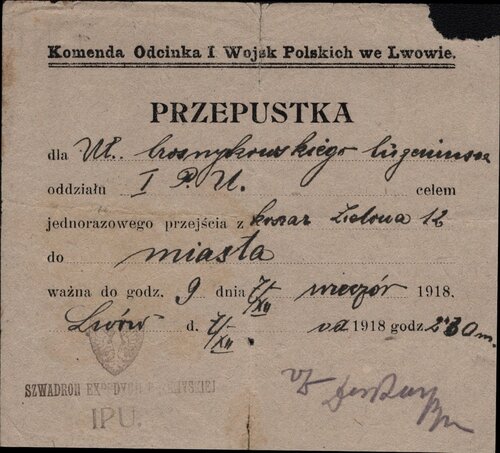 Komenda Odcinka I Wojsk Polskich we Lwowie.
PRZEPUSTKA
dla Uł. Czosnykowskiego Eugeniusza
oddziału I P. U. celem
jednorazowego przejścia z koszar Zielona 12
do miasta
ważna do godz. 9 dnia 7/XII wieczór 1918.
Lwów d. 7/XII 1918 godz. 2 30 m.
SZWADRON EKSPEDYCYI
IPU.